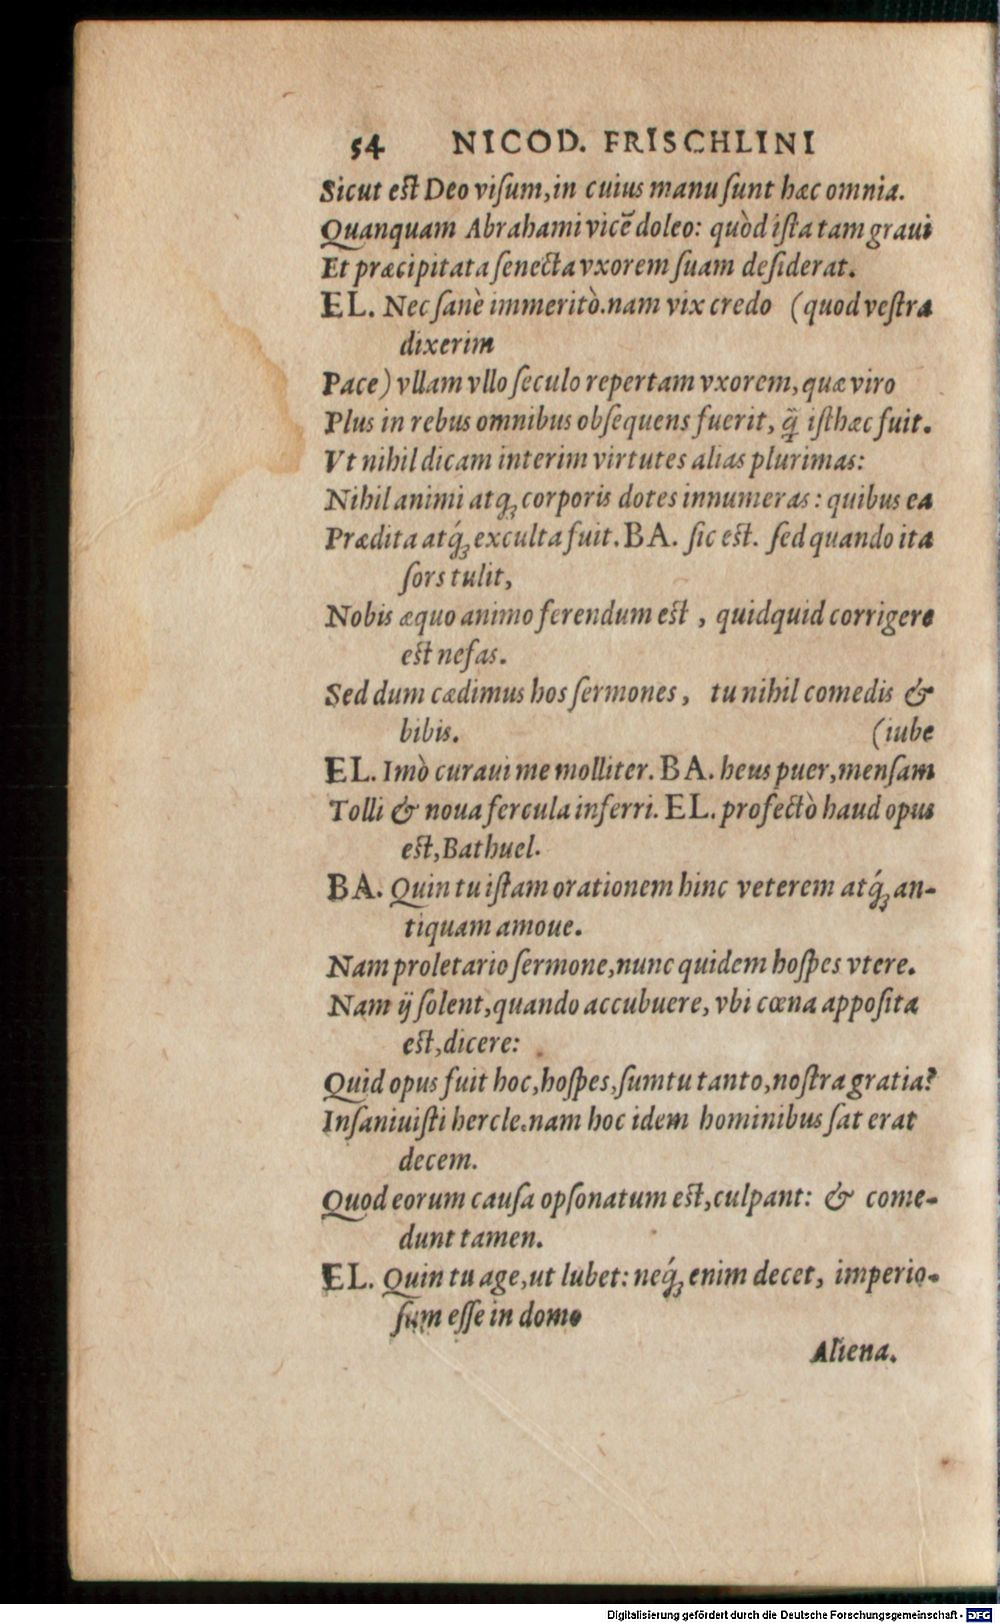 54 NICOD. FRISCHLINI
Sicut est Deo viſum, in cuius manu ſunt hæc omnia.
Quanquam Abrahami vicē doleo: quòd iſta tam graui
Et præcipitata ſenecta vxorem ſuam deſiderat.
EL. Nec ſanè immeritò. nam vix credo (quod veſtra
dixerim
Pace) vllam vllo ſeculo repertam vxorem, quæ viro
Plus in rebus omnibus obſequens fuerit, q̃ iſthæc fuit.
Vt nihil dicam interim virtutes alias plurimas:
Nihil animi atq; corporis dotes innumeras: quibus ea
Prædita atq́; exculta fuit. BA. ſic est. ſed quando ita
ſors tulit,
Nobis æquo animo ferendum est, quidquid corrigere
est nefas.
Sed dum cædimus hos ſermones, tu nihil comedis &
bibis. (iube
EL. Imò curaui me molliter. BA. heus puer, menſam
Tolli & noua fercula inferri. EL. profectò haud opus
est, Bathuel.
BA. Quin tu iſtam orationem hinc veterem atq́; an-
tiquam amoue.
Nam proletario ſermone, nunc quidem hoſpes vtere.
Nam ij ſolent, quando accubuere, vbi cœna appoſita
est, dicere:
Quid opus fuit hoc, hoſpes, ſumtu tanto, noſtra gratia?
Inſaniuiſti hercle. nam hoc idem hominibus ſat erat
decem.
Quod eorum cauſa opſonatum est, culpant: & come-
dunt tamen.
EL. Quin tu age, ut lubet: neq́; enim decet, imperio-
ſum eſſe in domo
Aliena.
Digitalisierung gefördert durch die Deutsche Forschungsgemeinschaft - DFG